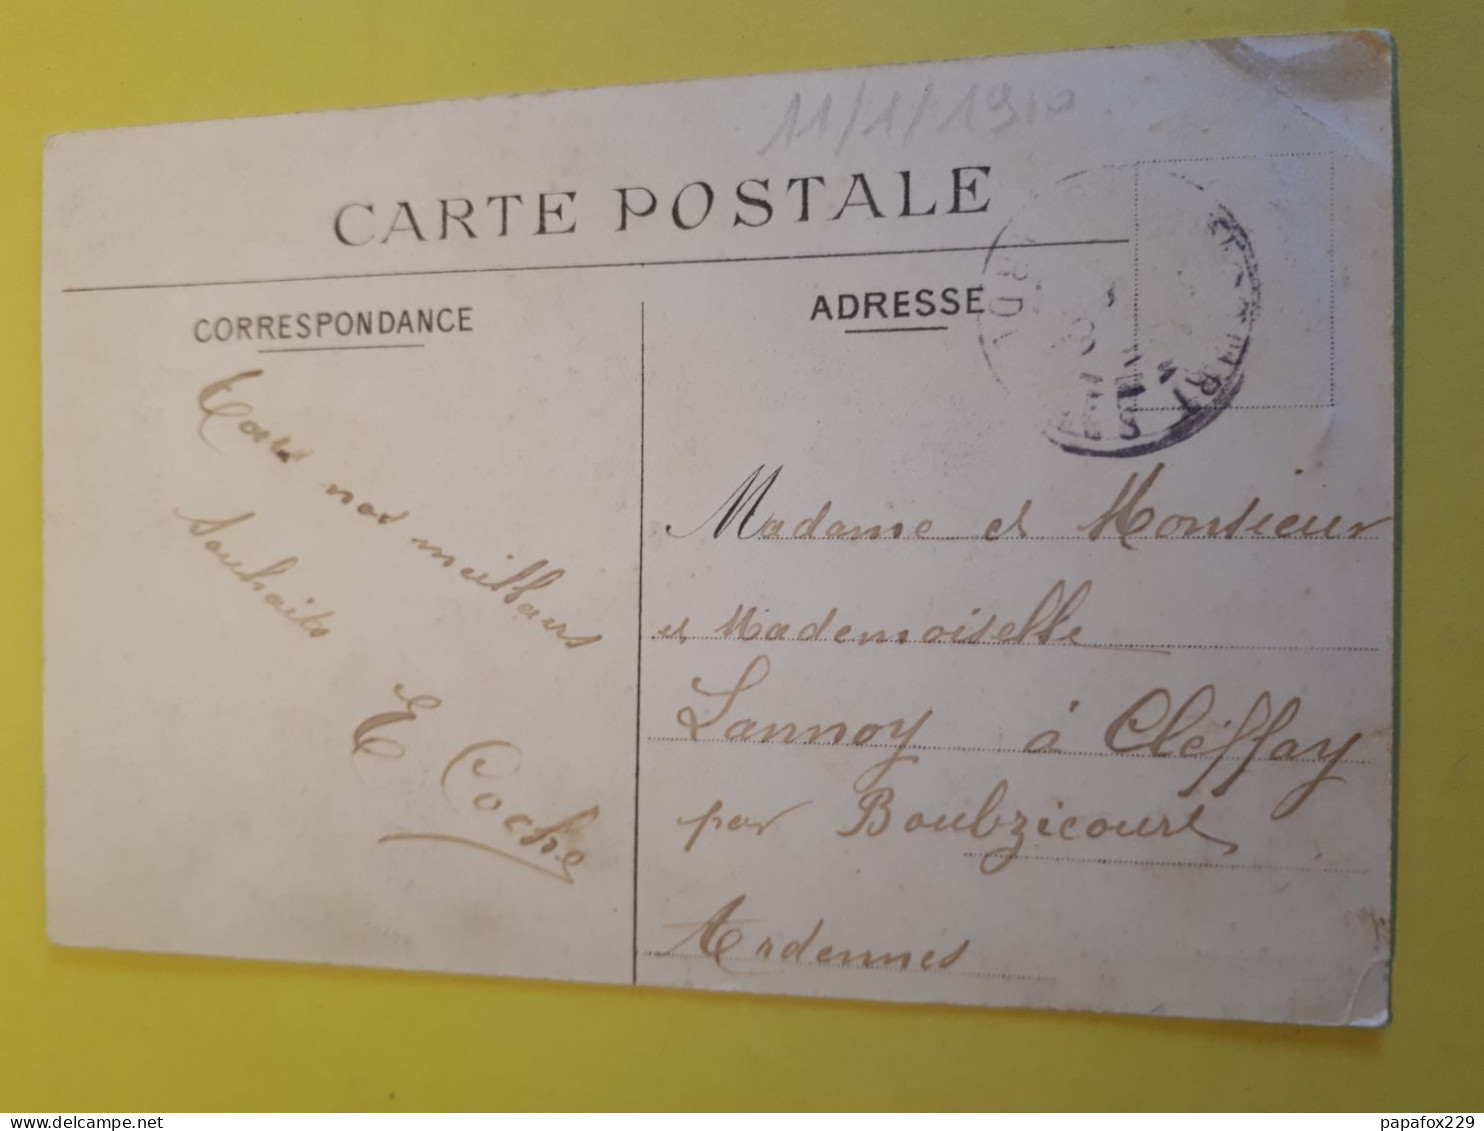 11/1/1910
CARTE POSTALE
CORRESPONDANCE
Tous nos meilleurs
souhaits
E Coche
ADRESSE
Madame et Monsieur
et Mademoiselle
Lannoy à Cléffay
par Boulzicourt
Ardennes
papafox229